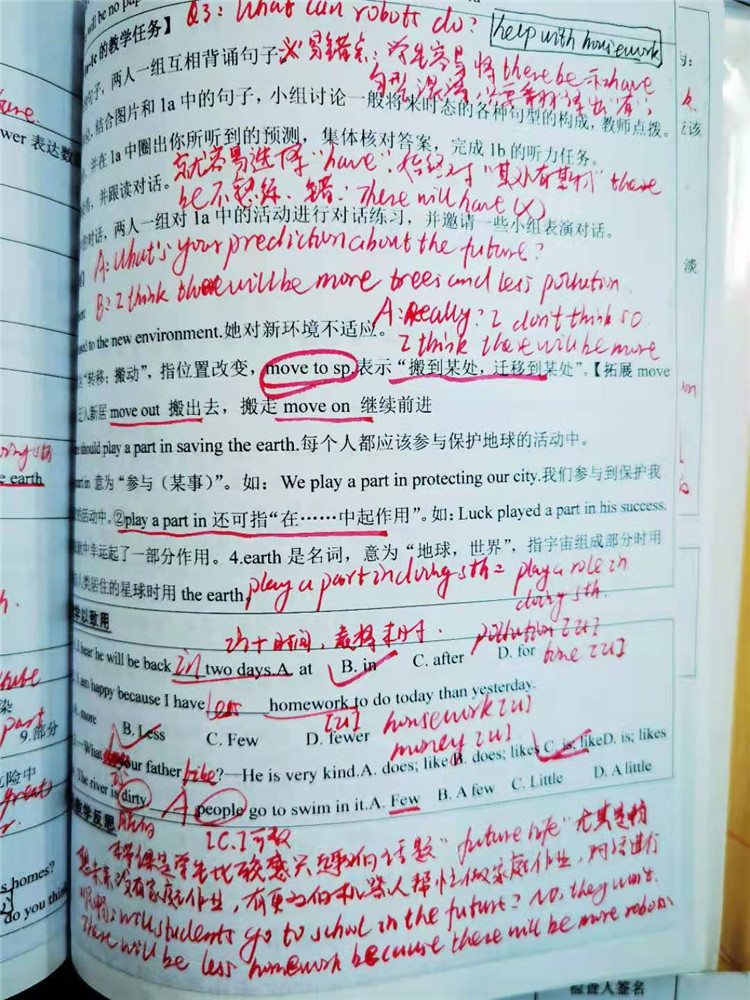 will be no pap
Q3: What can robots do? help with housework
的教学任务】
句子，两人一组互相背诵句子 易错点：学生容易将there be 示have
结合图片和 1a 中的句子，小组讨论一般将来时态的各种句型的构成，教师点拨。
并在 1a 中圈出你所听到的预测，集体核对答案，完成 1b 的听力任务。
就容易选择“have”，始终对“某处有某物”there
，并跟读对话。
be 不熟练．错：There will have (×)
对话，两人一组对 1a 中的活动进行对话练习，并邀请一些小组表演对话。
A: What's your prediction about the future?
B: I think there will be more trees and less pollution.
A: Really? I don't think so.
sed to the new environment.她对新环境不适应。
I think there will be more
“转移；搬动”，指位置改变，move to sp.表示“搬到某处，迁移到某处”。【拓展 move
迁入新居 move out 搬出去，搬走 move on 继续前进
should play a part in saving the earth.每个人都应该参与保护地球的活动中。
part in 意为“参与（某事）”。如：We play a part in protecting our city.我们参与到保护我
的活动中。②play a part in 还可指“在……中起作用”。如：Luck played a part in his success.
中幸运起了一部分作用。4.earth 是名词，意为“地球，世界”，指宇宙组成部分时用
人类居住的星球时用 the earth. play a part in doing sth = play a role in
doing sth.
学以致用
in+时间，表将来时． pollution [U]
I hear he will be back in two days.A. at B. in C. after D. for time [U]
I am happy because I have less homework to do today than yesterday.
[U] housework [U]
A. more B. Less C. Few D. fewer
money [U]
—What is your father like?—He is very kind.A. does; like B. does; likes C. is; like D. is; likes
The river is dirty. A people go to swim in it.A. Few B. A few C. Little D. A little
教学反思 [C.] 可数
本节课是学生比较感兴趣的话题“future life”尤其是
想未来没有家庭作业，有更多的机器人帮忙做家庭作业，对话进行
顺畅：will students go to school in the future? No, they won't.
There will be less homework because there will be more robots.
wer 表达数
the earth
染
part
9.部分
危险中
great
s homes?
do you think
应该
淡
检查人签名